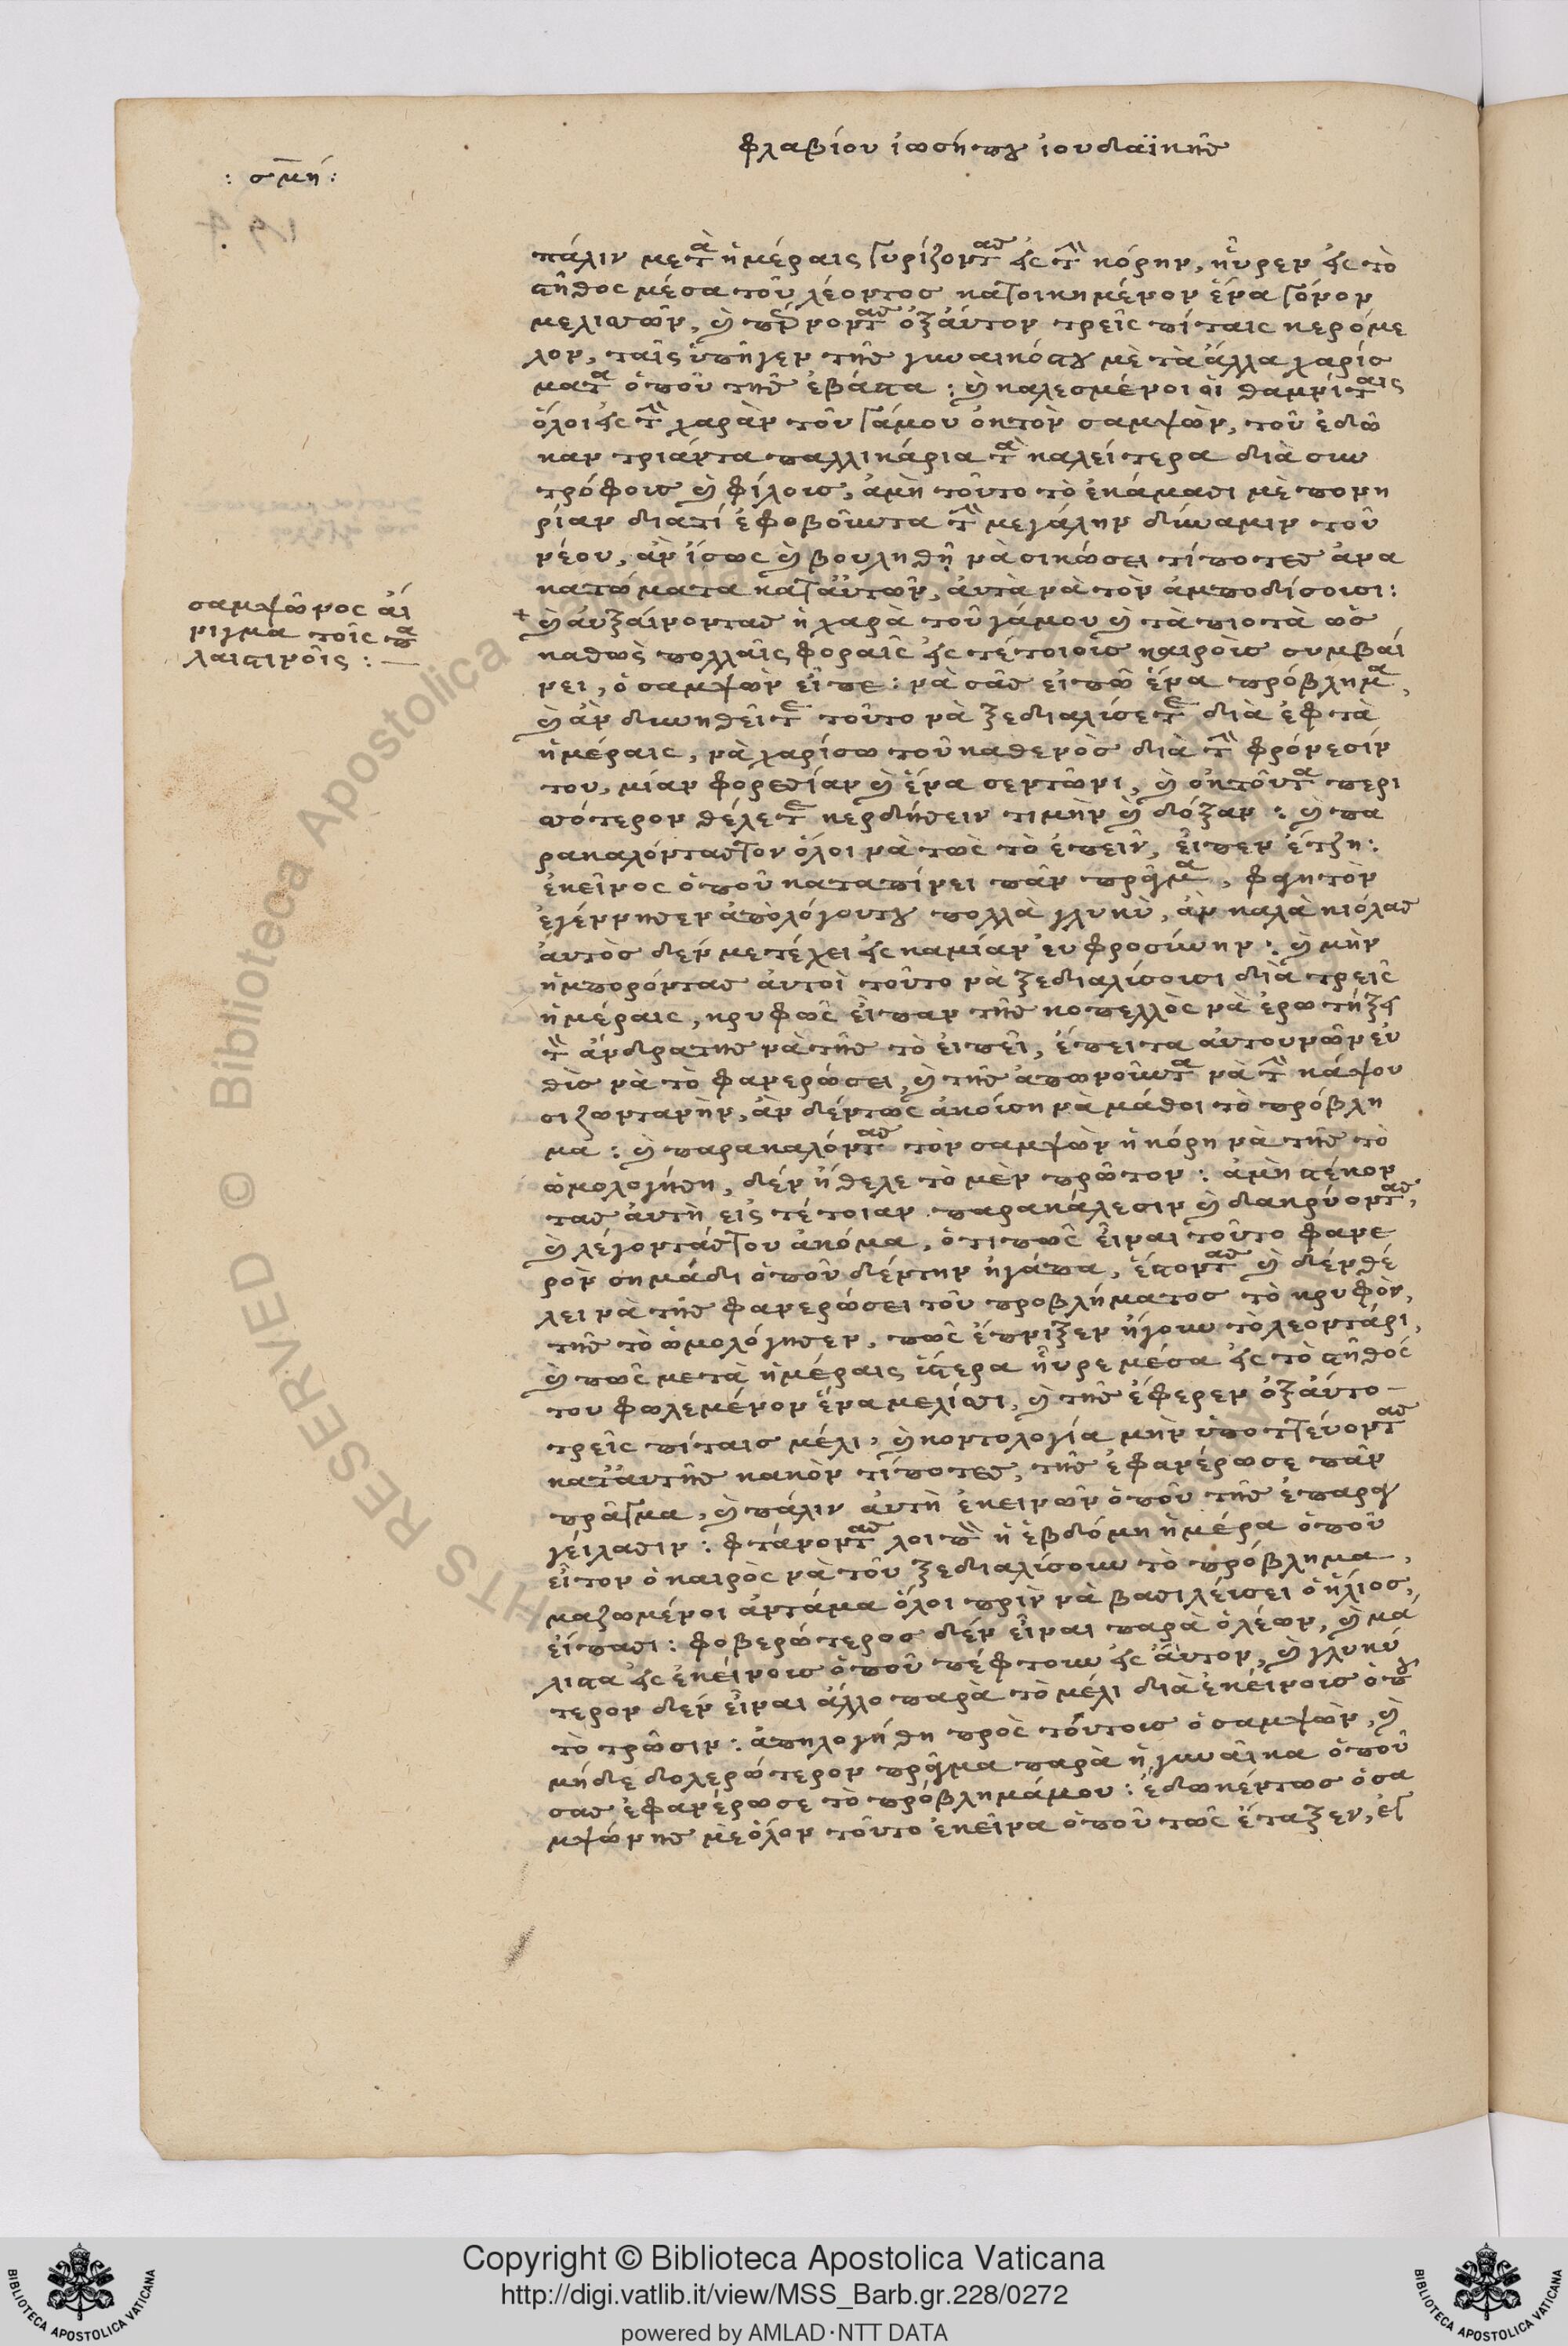 φλαβίου ἰωσήπου ἰουδαϊκῆσ
: σμή :
πάλιν μετὰ ἡμέραις γυρίζοντας εἰς τὴν κόρην, ηὗρεν εἰς τὸ
στῆθος μέσα τοῦ λέοντος κατοικημένον ἕνα γόνον
μελισσῶν, καὶ πέρνοντας ὀξαύτον τρεῖς πίταις κερόμε
λον, ταῖς ὑπῆγεν τῆς γυναικόστου μὲ τὰ ἄλλα χαρίσ
ματα ὁποῦ τῆς ἐβάστα : καὶ καλεσμένοι οἱ θαμνίταις
ὅλοι εἰς τὴν χαρὰν τοῦ γάμου ὀκτὸν σαμψὼν, τοῦ ἐδῶ
καν τριάντα παλλικάρια τὰ καλείτερα διὰ συν
τρόφους καὶ φίλους, ἀμὴ τοῦτο τὸ ἐκάμασι μὲ πονη
ρίαν διατί ἐφοβοῦντα τὴν μεγάλην δύναμιν τοῦ
νέου, ἀν ἴσως καὶ βουληθῆ νὰ σικώσει τίποτες ἀνα
κατώματα κατ' αὐτῶν, αὐτὰ νὰ τὸν ἀμποδίσουσι :
σαμψῶνος αἴ
νιγμα τοῖς πα
λαιστινοῖς : —
+ καὶ αὐξαίνοντας ἡ χαρὰ τοῦ γάμου καὶ τὰ πιοτὰ ὡσ
καθὼς πολλαῖς φοραῖς εἰς τέτοιοις καιροῖς συμβαί
νει, ὁ σαμψὼν εἶπε : νὰ σᾶς εἰπῶ ἕνα πρόβλημα,
καὶ ἀν δυνηθεῖτε τοῦτο νὰ ξεδιαλίσετε διὰ ἐφτὰ
ἡμέραις, νὰ χαρίσω τοῦ καθενὸς διὰ τὴν φρόνεσίν
του, μίαν φορεσίαν καὶ ἕνα σεντῶνι, καὶ ὀκτοῦτα περι
σσότερον θέλετε κερδήσειν τιμὴν καὶ δόξαν : καὶ πα
ρακαλόντας τον ὅλοι νὰ τῶς τὸ ἐπεῖν, εἶπεν ἔτζη :
ἐκεῖνος ὁποῦ καταπίνει πᾶν πρᾶγμα, φαγητὸν
ἐγέννησεν ἀπὸλόγουτου πολλὰ γλυκὺ, ἀν καλὰ κιόλας
αὐτὸς δὲν μετέχει εἰς καμίαν εὐφροσύνην : καὶ μὴν
ἠμπορόντας αὐτοὶ τοῦτο νὰ ξεδιαλίσουσι διὰ τρεῖς
ἡμέραις, κρυφῶς εἶπαν τῆς κοπελλὸς νὰ ἐρωτήξει
τὸν ἄνδρατης νὰ τῆς τὸ εἰπεῖ, ἔπειτα αὐτουνῶν εὐ
θὶς νὰ τὸ φανερώσει, καὶ τῆς ἀπονοῦντα νὰ τὴν κάψου
σι ζωντανὴν, ἀν δέντως ἀκούση νὰ μάθοι τὸ πρόβλη
μα : καὶ παρακαλόντας τὸν σαμψὼν ἡ κόρη νὰ τῆς τὸ
ὡμολογήση, δὲν ἤθελε τὸ μὲν πρῶτον : ἀμὴ στέκον
τας αὐτὴ εἰς τέτοιαν παρακάλεσιν καὶ δακρύοντας,
καὶ λέγοντάς του ἀκόμα, ὅτι πῶς εἶναι τοῦτο φανε
ρὸν σημάδι ὁποῦ δέντην ἠγάπα, ἔστοντας καὶ δὲν θέ
λει νὰ τῆς φανερώσει τοῦ προβλήματος τὸ κρυφὸν,
τῆς τὸ ὡμολόγησεν, πῶς ἔπνιξεν ἤγουν τὸ λεοντάρι,
καὶ πῶς μετὰ ἡμέραις ὕστερα ηὗρε μέσα εἰς τὸ στῆθός
του φωλεμένον ἕνα μελίσσι, καὶ τῆς ἔφερεν ὀξαύτο
τρεῖς πίταις μέλι, καὶ κοντολογία μὴν ὑποπτεύοντας
κατ' αὐτῆς κακὸν τίποτες, τῆς ἐφανέρωσε πᾶν
πρᾶγμα, καὶ πάλιν αὐτὴ ἐκεινῶν ὁποῦ τῆς ἐπαραγ
γείλασιν : φτάνοντας λοιπὸν ἡ ἑβδόμη ἡμέρα ὁποῦ
εἶτον ὁ καιρὸς νὰ τοῦ ξεδιαλίσουν τὸ πρόβλημα,
μαζωμένοι ἀντάμα ὅλοι πρὶν νὰ βασιλεύσει ὁ ἥλιος,
εἴπασι : φοβερώτερος δὲν εἶναι παρὰ ὁ λέων, καὶ μά
λιστα εἰς ἐκείνους ὁποῦ πέφτουν εἰς αὐτον, καὶ γλυκύ
τερον δὲν εἶναι ἄλλο παρὰ τὸ μέλι διὰ ἐκείνους ὁποῦ
τὸ τρῶσιν : ἀπηλογήθη πρὸς τούτους ὁ σαμψὼν, καὶ
μήδε δολερώτερον πρᾶγμα παρὰ ἡ γυναῖκα ὁποῦ
σας ἐφανέρωσε τὸ πρόβλημάμου : ἐδωκέντως ὁ σα
μψώνης μὲ ὅλον τοῦτο ἐκεῖνα ὁποῦ τῶς ἔταξεν, ἐγ
Copyright © Biblioteca Apostolica Vaticana
http://digi.vatlib.it/view/MSS_Barb.gr.228/0272
powered by AMLAD·NTT DATA